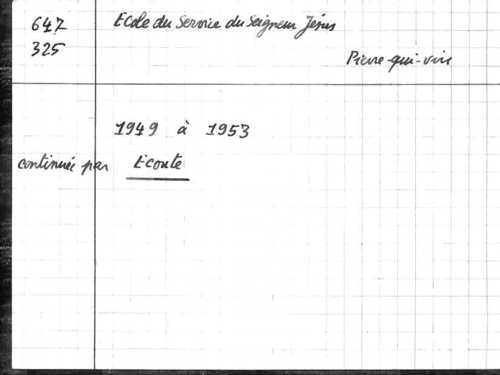 647 Ecole du Service du Seigneur Jésus
325
Pierre-qui-vire
1949 à 1953
continuée par Ecoute